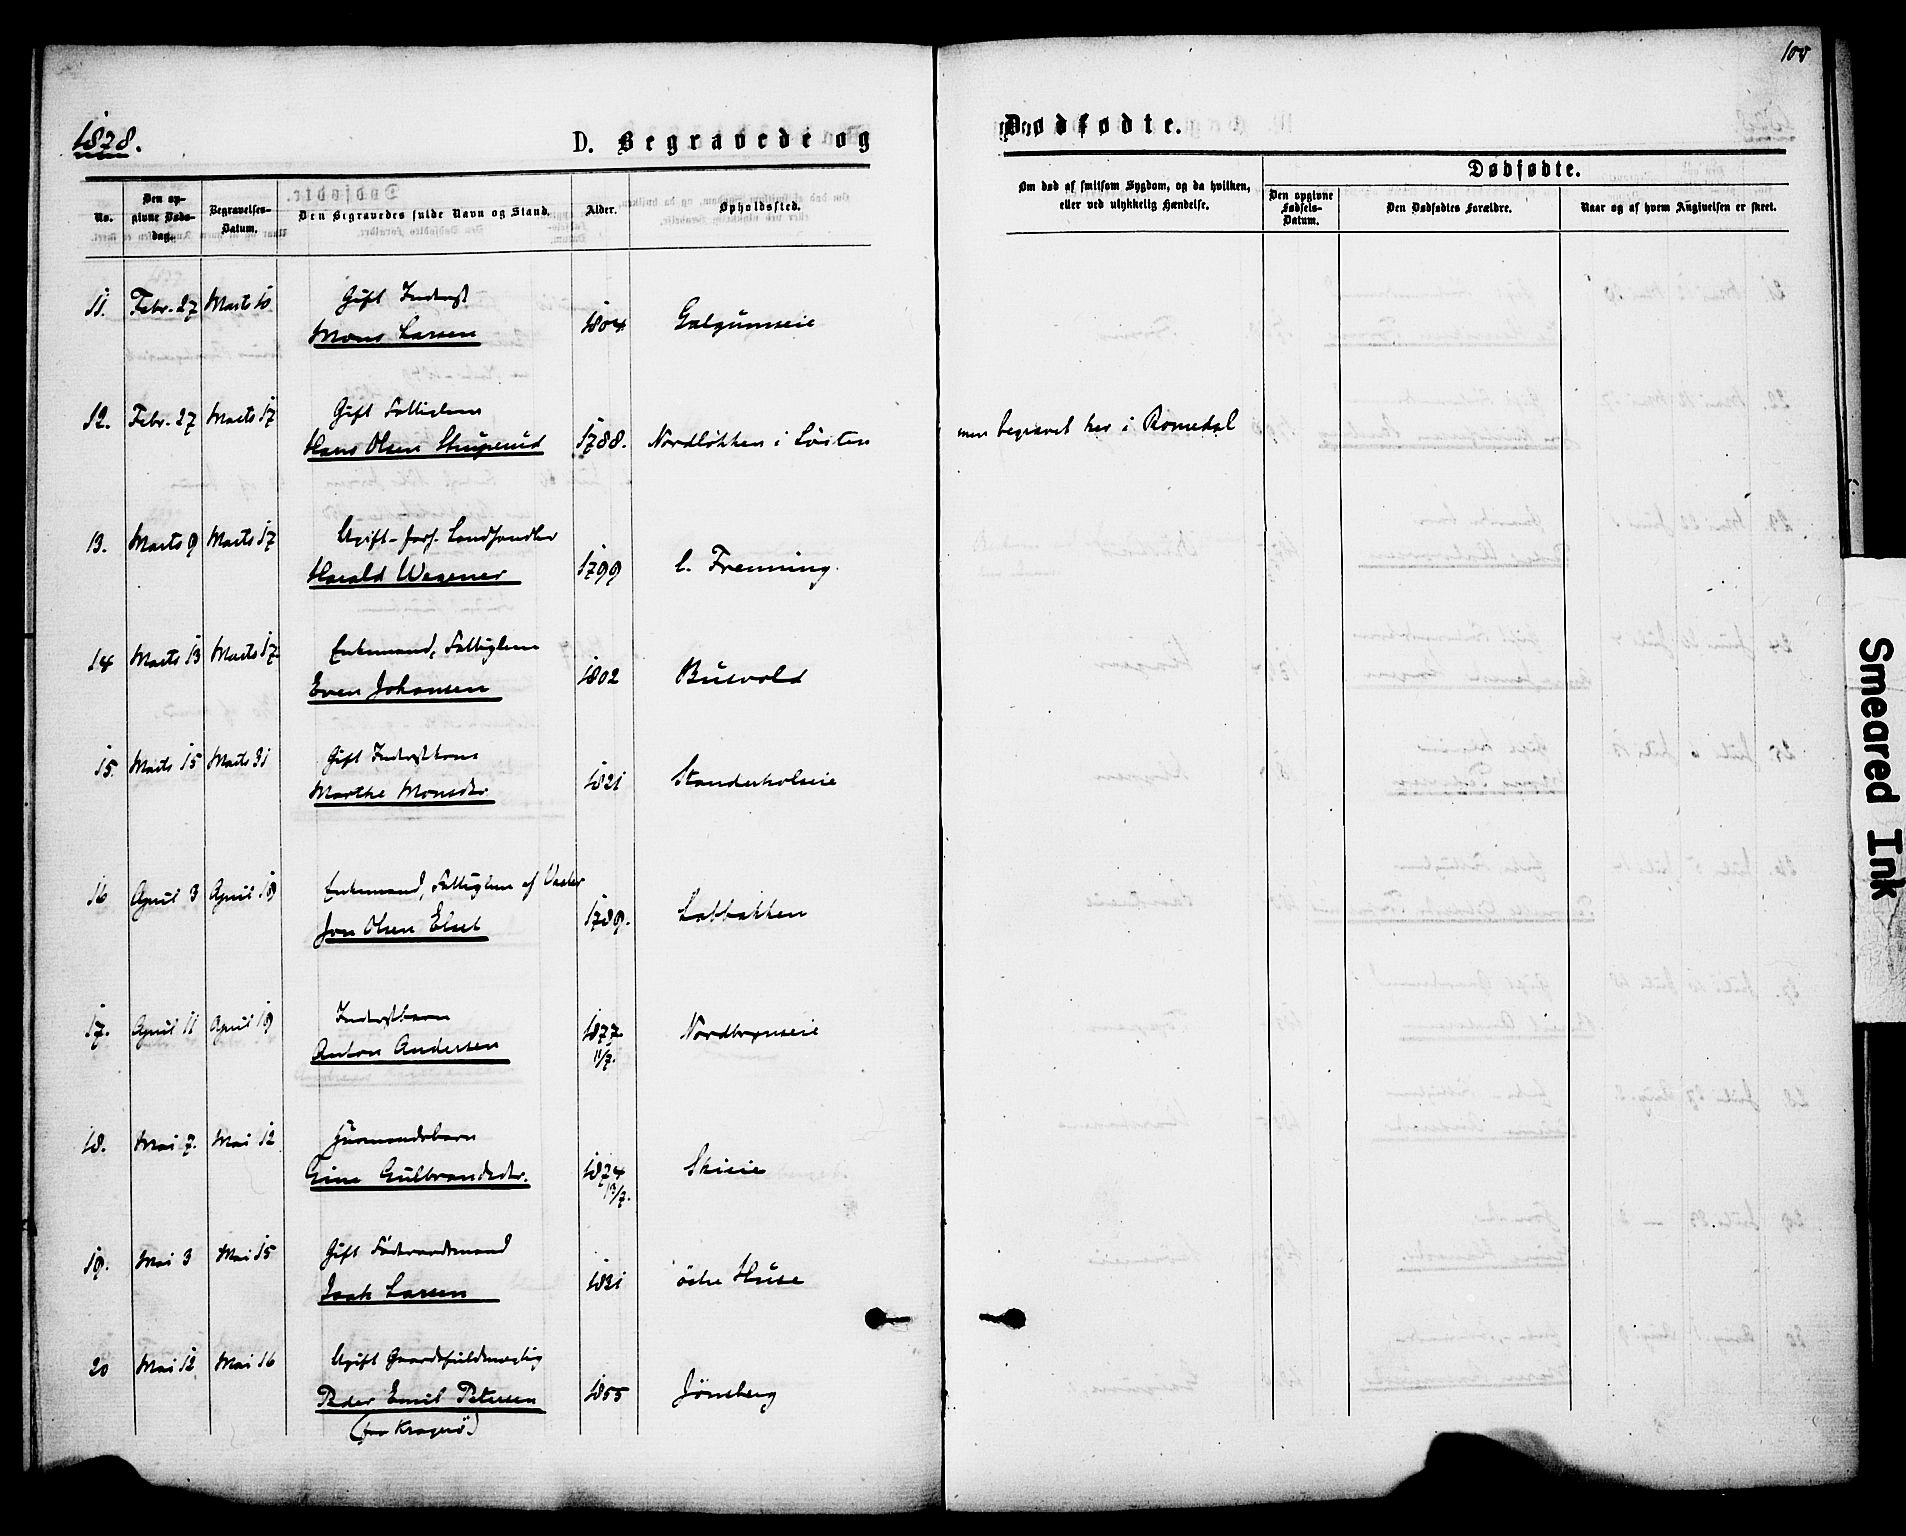 100
1878.
D. Begravede og
Dødfødte.
No.
Den opgivne Dødsdag.
Begravelses-Datum.
Den Begravedes fulde Navn og Stand.
Alder.
Opholdssted.
Om død af smitsom Sygdom, og da hvilken, eller ved ulykkelig Hændelse.
Dødfødte.
Den opgivne Fødsels-Datum.
Den Dødfødtes Forældre.
Naar og af hvem Angivelsen er skeet.
11. Febr. 27 Marts 10 Gift Inderst
Mons Larsen 1804 Galgumseie
12. Febr. 27 Marts 17 Gift Fattiglem
Hans Olsen Struperud 1788. Nordløkken i Løiten men begravet her i Romedal
13. Marts 9 Marts 17 Ugift forh. Landhandler
Harald Wegener 1799 l. Frenning
14 Marts 13 Marts 17 Enkemand, Fattiglem
Even Johansen 1802 Busvold
15. Marts 15 Marts 31 Gift Inderstkone
Marthe Monsdr. 1821 Standerholseie
16 April 3 April 18 Enkemand, Fattiglem af Vaaler
Jon Olsen Elset 1789. Labbakken
17. April 11 April 19 Inderstbarn
Anton Andersen 1877 11/7. Nordbynseie
18. Mai 7. Mai 12 Huusmandsbarn
Gine Gulbrandsdr. 1874 13/7. Skieie
19. Mai 3 Mai 15 Gift Føderaadsmand
Isak Larsen 1821 östre Huse
20 Mai 12 Mai 16 Ugift Gaardsfuldmægtig
Peder Emil Petersen 1855 Jønsberg
(fra Kragerö)
Smeared Ink